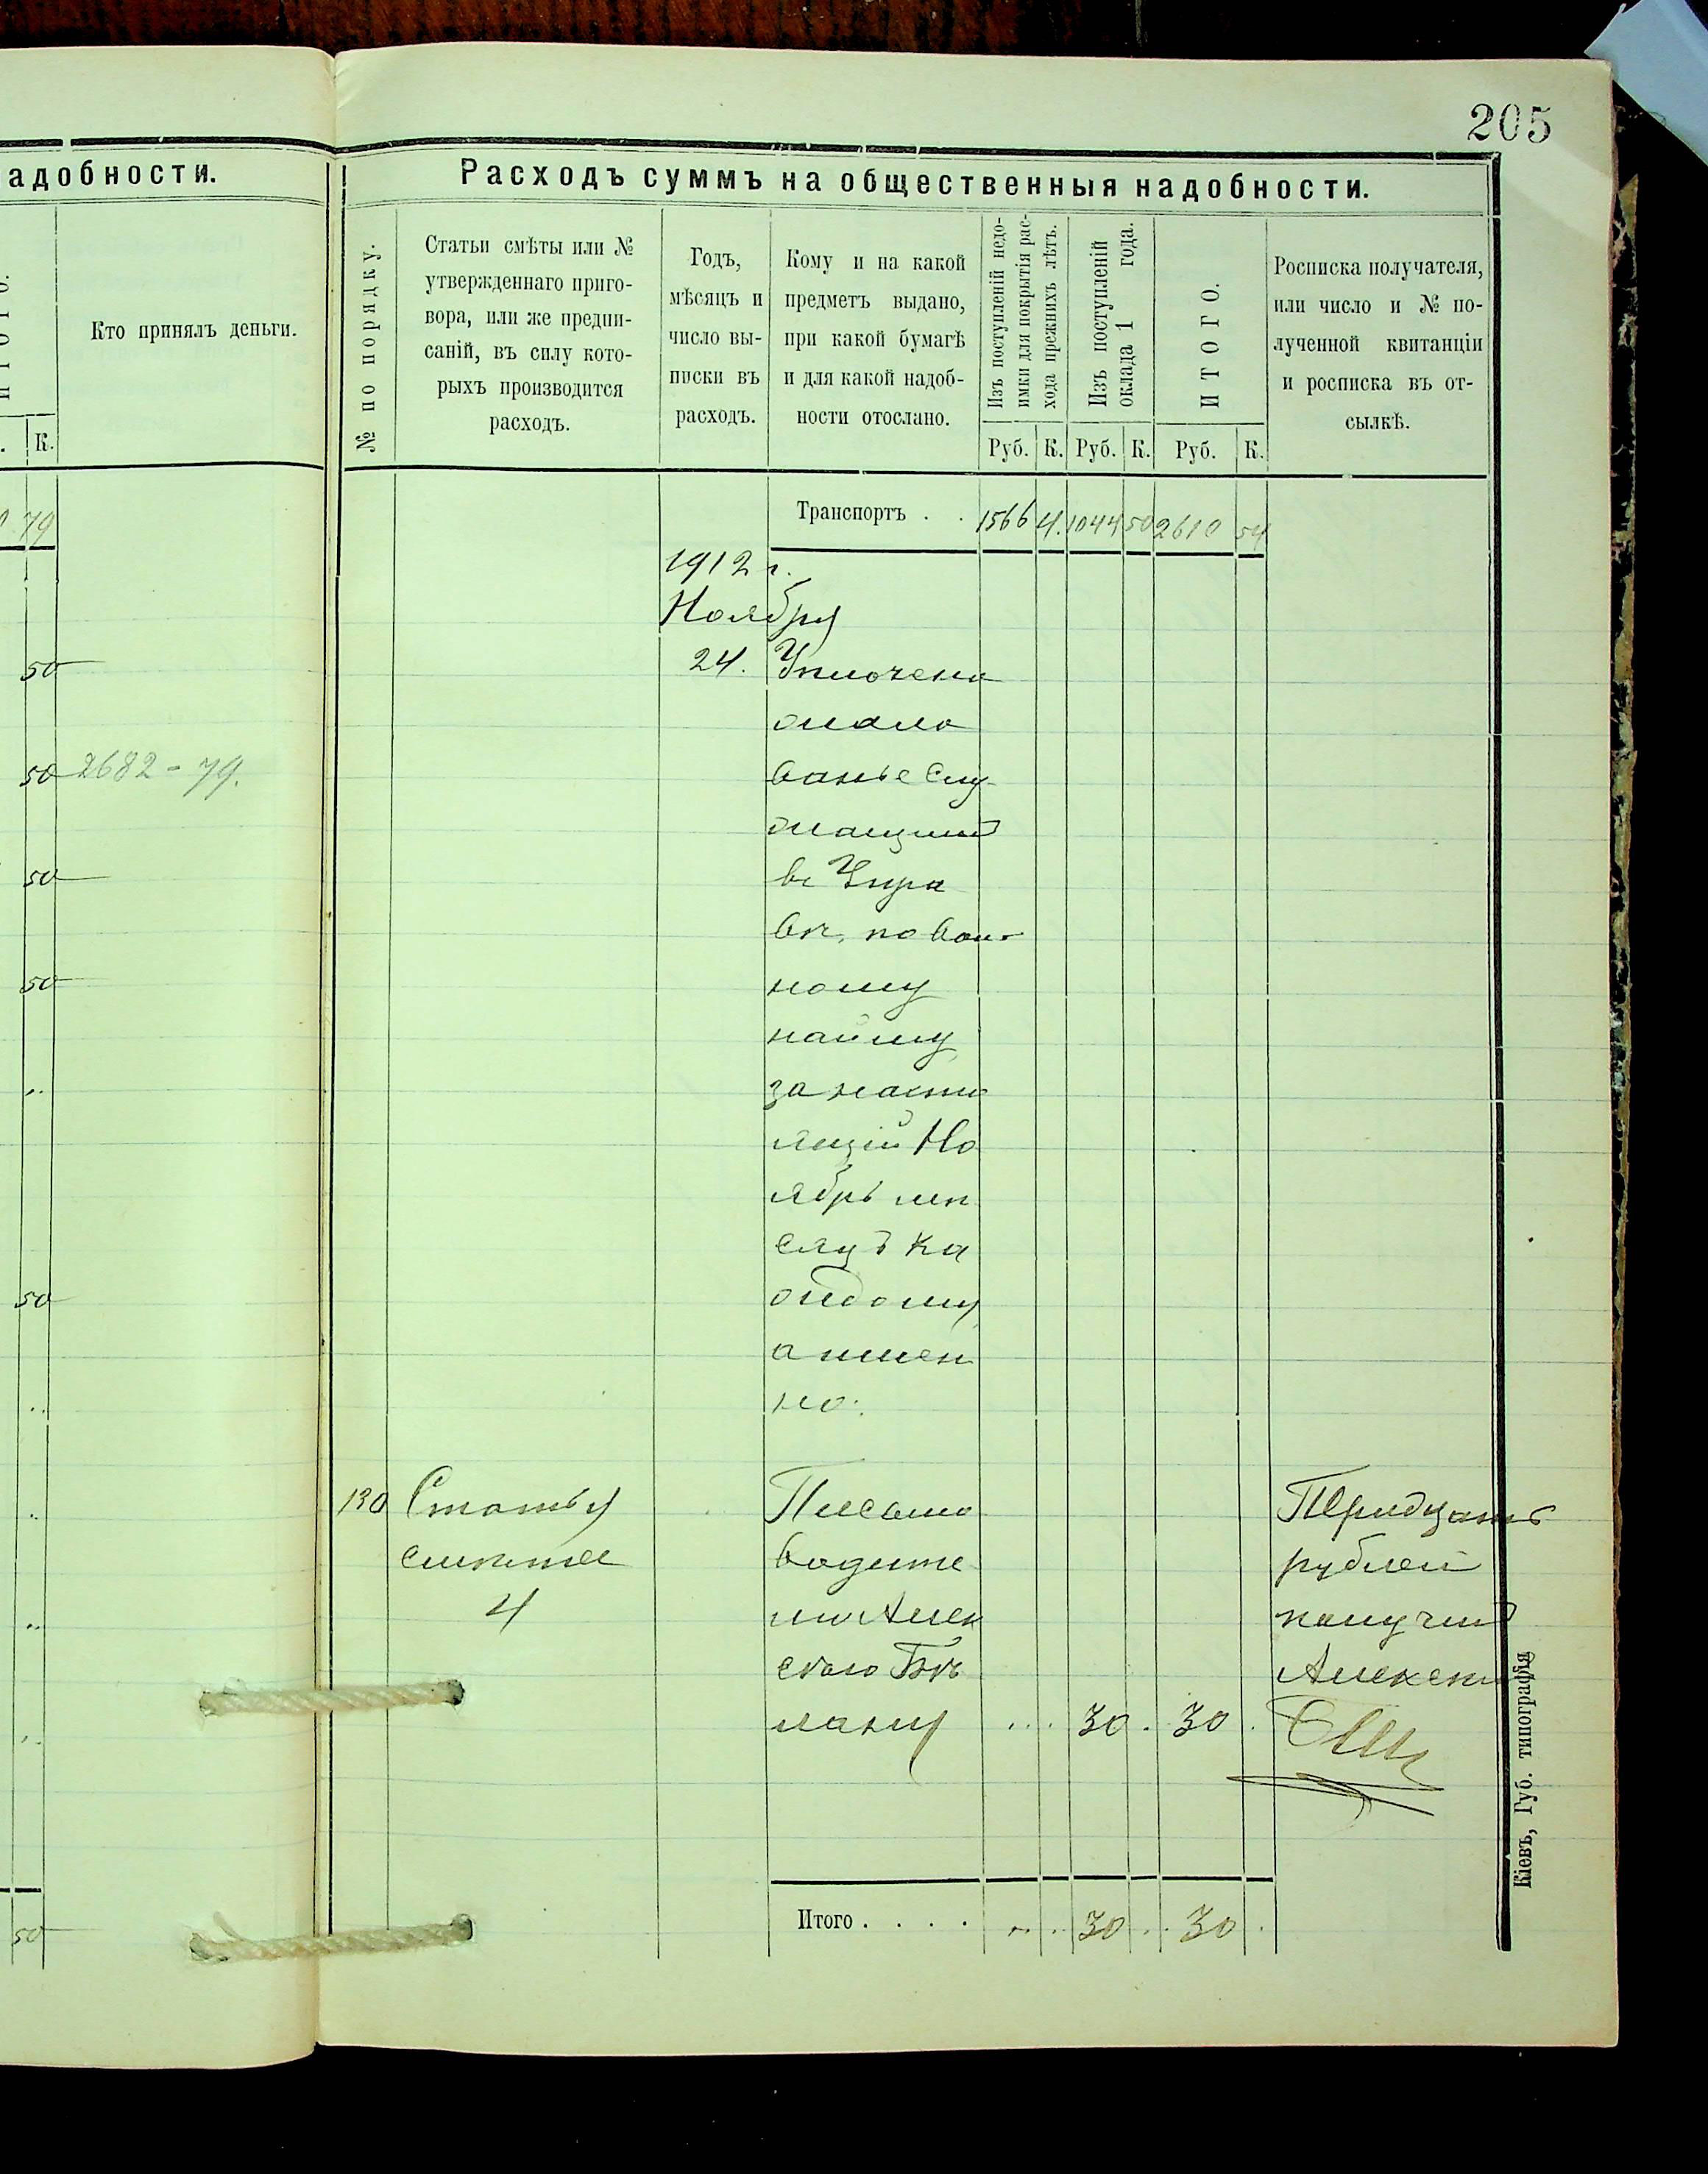 205
адобности.
Кто принялъ деньги.
К.
79
50
50 2682 - 79.
50
50
50
50
Расходъ суммъ на общественныя надобности.
№ по порядку.
Статьи смѣты или №
утвержденнаго приго-
вора, или же предпи-
саній, въ силу кото-
рыхъ производится
расходъ.
Годъ,
мѣсяцъ и
число вы-
писки въ
расходъ.
Кому и на какой
предметъ выдано,
при какой бумагѣ
и для какой надоб-
ности отослано.
Изъ поступленій недо-
имки для покрытія рас-
хода прежнихъ лѣтъ.
Изъ поступленій
оклада 1 года.
ИТОГО.
Росписка получателя,
или число и № по-
лученной квитанціи
и росписка въ от-
сылкѣ.
Руб. К. Руб. К. Руб. К.
Транспортъ . . 1566 4. 1044 50 2610 54
1912 г.
Ноября
24. Уплочено
жало
ванье слу-
жащимъ
въ Упра
вѣ, по воль
ному
найму
за насто
ящій Но
ябрь мѣ
сяцъ ка
ждому
а имен
но:
130 Статья
смѣты
4
Письмо
водите
лю Алек
сѣю Бѣ
лану ... 30 . 30 .
Тридцать
рублей
получилъ
Алексѣй
Итого . . . . .. .. 30 .. 30 .
Кіевъ, Губ. типографія